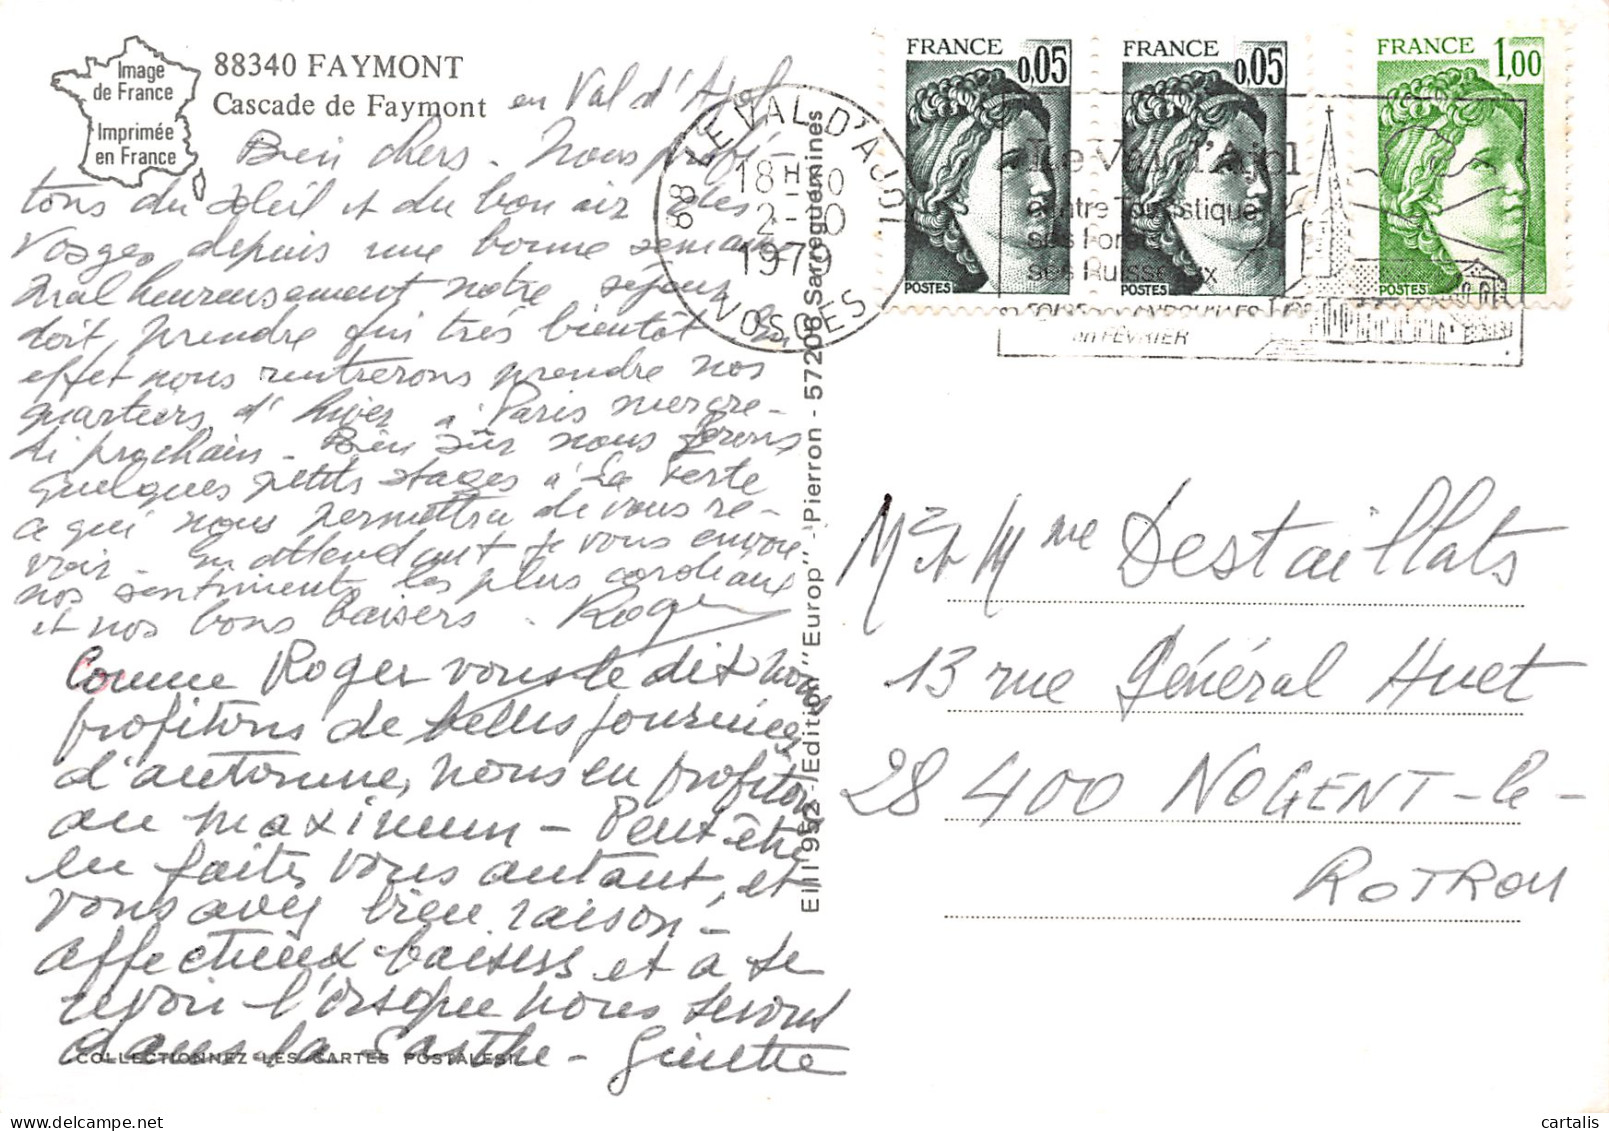 Image
de France
Imprimée
en France
88340 FAYMONT
Cascade de Faymont
en Val d'Ajol
Bien chers. Nous profi-
tons du soleil et du bon air des
Vosges depuis une bonne semaine
Malheureusement notre séjour
doit prendre fin très bientôt. En
effet nous rentrerons prendre nos
quartiers d'hiver à Paris mercre-
di prochain. Bien sûr nous ferons
quelques petits stages à La Ferté
ce qui nous permettra de vous re-
voir. En attendant je vous envoie
nos sentiments les plus cordiaux
et nos bons baisers. Roger
Comme Roger vous le dit nous
profitons de belles journées
d'automne, nous en profitons
au maximum - Peut être
en faites vous autant, et
vous avez bien raison -
affectueux baisers et à se
revoir lorsque nous serons
dans la Sarthe - Ginette
COLLECTIONNEZ LES CARTES POSTALES
Edition "Europ" - Pierron - 57206 Sarreguemines
88 LE VAL D'AJOL
18 H
2-10
1979
VOSGES
FRANCE
0,05
POSTES
FRANCE
0,05
POSTES
FRANCE
1,00
POSTES
Le Val d'Ajol
centre Touristique
ses Forêts
ses Ruisseaux
FOIRE aux ANDOUILLES
en FÉVRIER
Mr et Mme Destaillats
13 rue Général Huet
28 400 NOGENT-le-
ROTROU